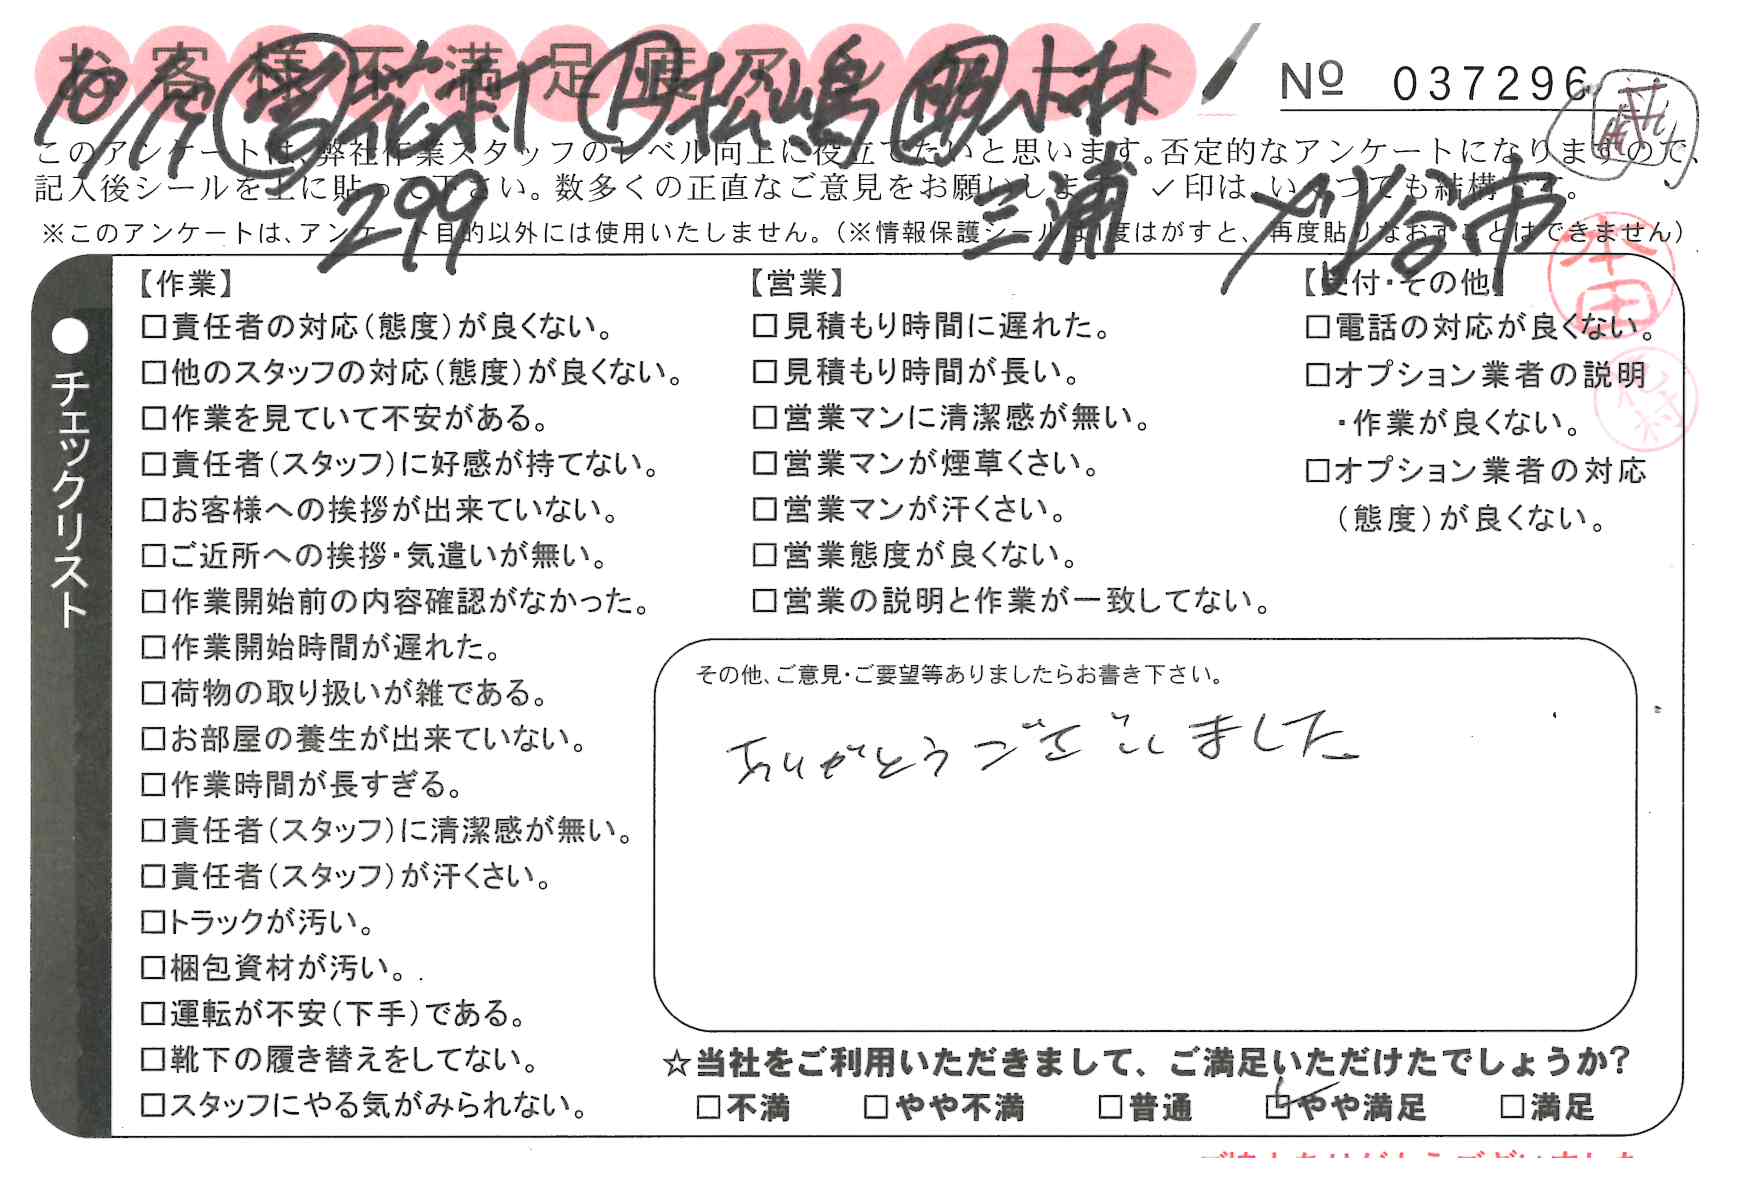 お客様不満足度アンケート
Nº 037296
10/19 営 花村 P 松嶋 助 小林
このアンケートは、弊社作業スタッフのレベル向上に役立てたいと思います。否定的なアンケートになりますので、
記入後シールを上に貼って下さい。数多くの正直なご意見をお願いします。✓印は、いくつでも結構です。
299 三浦 刈谷市
※このアンケートは、アンケート目的以外には使用いたしません。(※情報保護シールは1度はがすと、再度貼りなおすことはできません)
本田
●チェックリスト
【作業】
□責任者の対応(態度)が良くない。
□他のスタッフの対応(態度)が良くない。
□作業を見ていて不安がある。
□責任者(スタッフ)に好感が持てない。
□お客様への挨拶が出来ていない。
□ご近所への挨拶・気遣いが無い。
□作業開始前の内容確認がなかった。
□作業開始時間が遅れた。
□荷物の取り扱いが雑である。
□お部屋の養生が出来ていない。
□作業時間が長すぎる。
□責任者(スタッフ)に清潔感が無い。
□責任者(スタッフ)が汗くさい。
□トラックが汚い。
□梱包資材が汚い。
□運転が不安(下手)である。
□靴下の履き替えをしてない。
□スタッフにやる気がみられない。
【営業】
□見積もり時間に遅れた。
□見積もり時間が長い。
□営業マンに清潔感が無い。
□営業マンが煙草くさい。
□営業マンが汗くさい。
□営業態度が良くない。
□営業の説明と作業が一致してない。
【受付・その他】
□電話の対応が良くない。
□オプション業者の説明
・作業が良くない。
□オプション業者の対応
(態度)が良くない。
その他、ご意見・ご要望等ありましたらお書き下さい。
ありがとうございました
☆当社をご利用いただきまして、ご満足いただけたでしょうか?
□不満 □やや不満 □普通 ☑やや満足 □満足